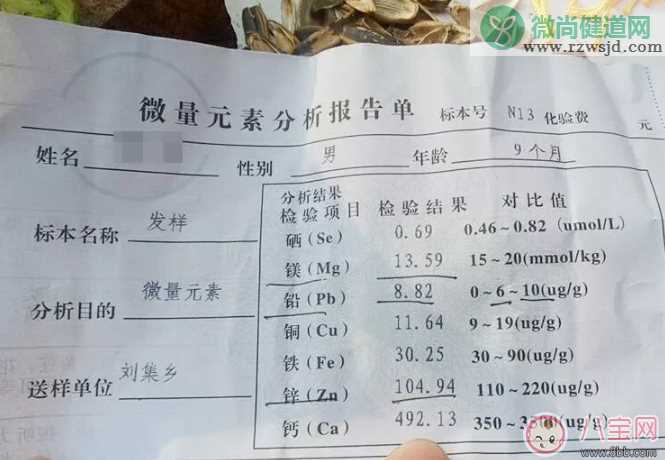 微尚健道网
www.rzwsjd.com
微量元素分析报告单 标本号 N13 化验费 元
姓名 性别 男 年龄 9个月
标本名称 发样
分析目的 微量元素
送样单位 刘集乡
分析结果
检验项目 检验结果 对比值
硒(Se) 0.69 0.46~0.82 (umol/L)
镁(Mg) 13.59 15~20(mmol/kg)
铅(Pb) 8.82 0~6~10(ug/g)
铜(Cu) 11.64 9~19(ug/g)
铁(Fe) 30.25 30~90(ug/g)
锌(Zn) 104.94 110~220(ug/g)
钙(Ca) 492.13 350~3500(ug/g)
八宝网
www.8bb.com